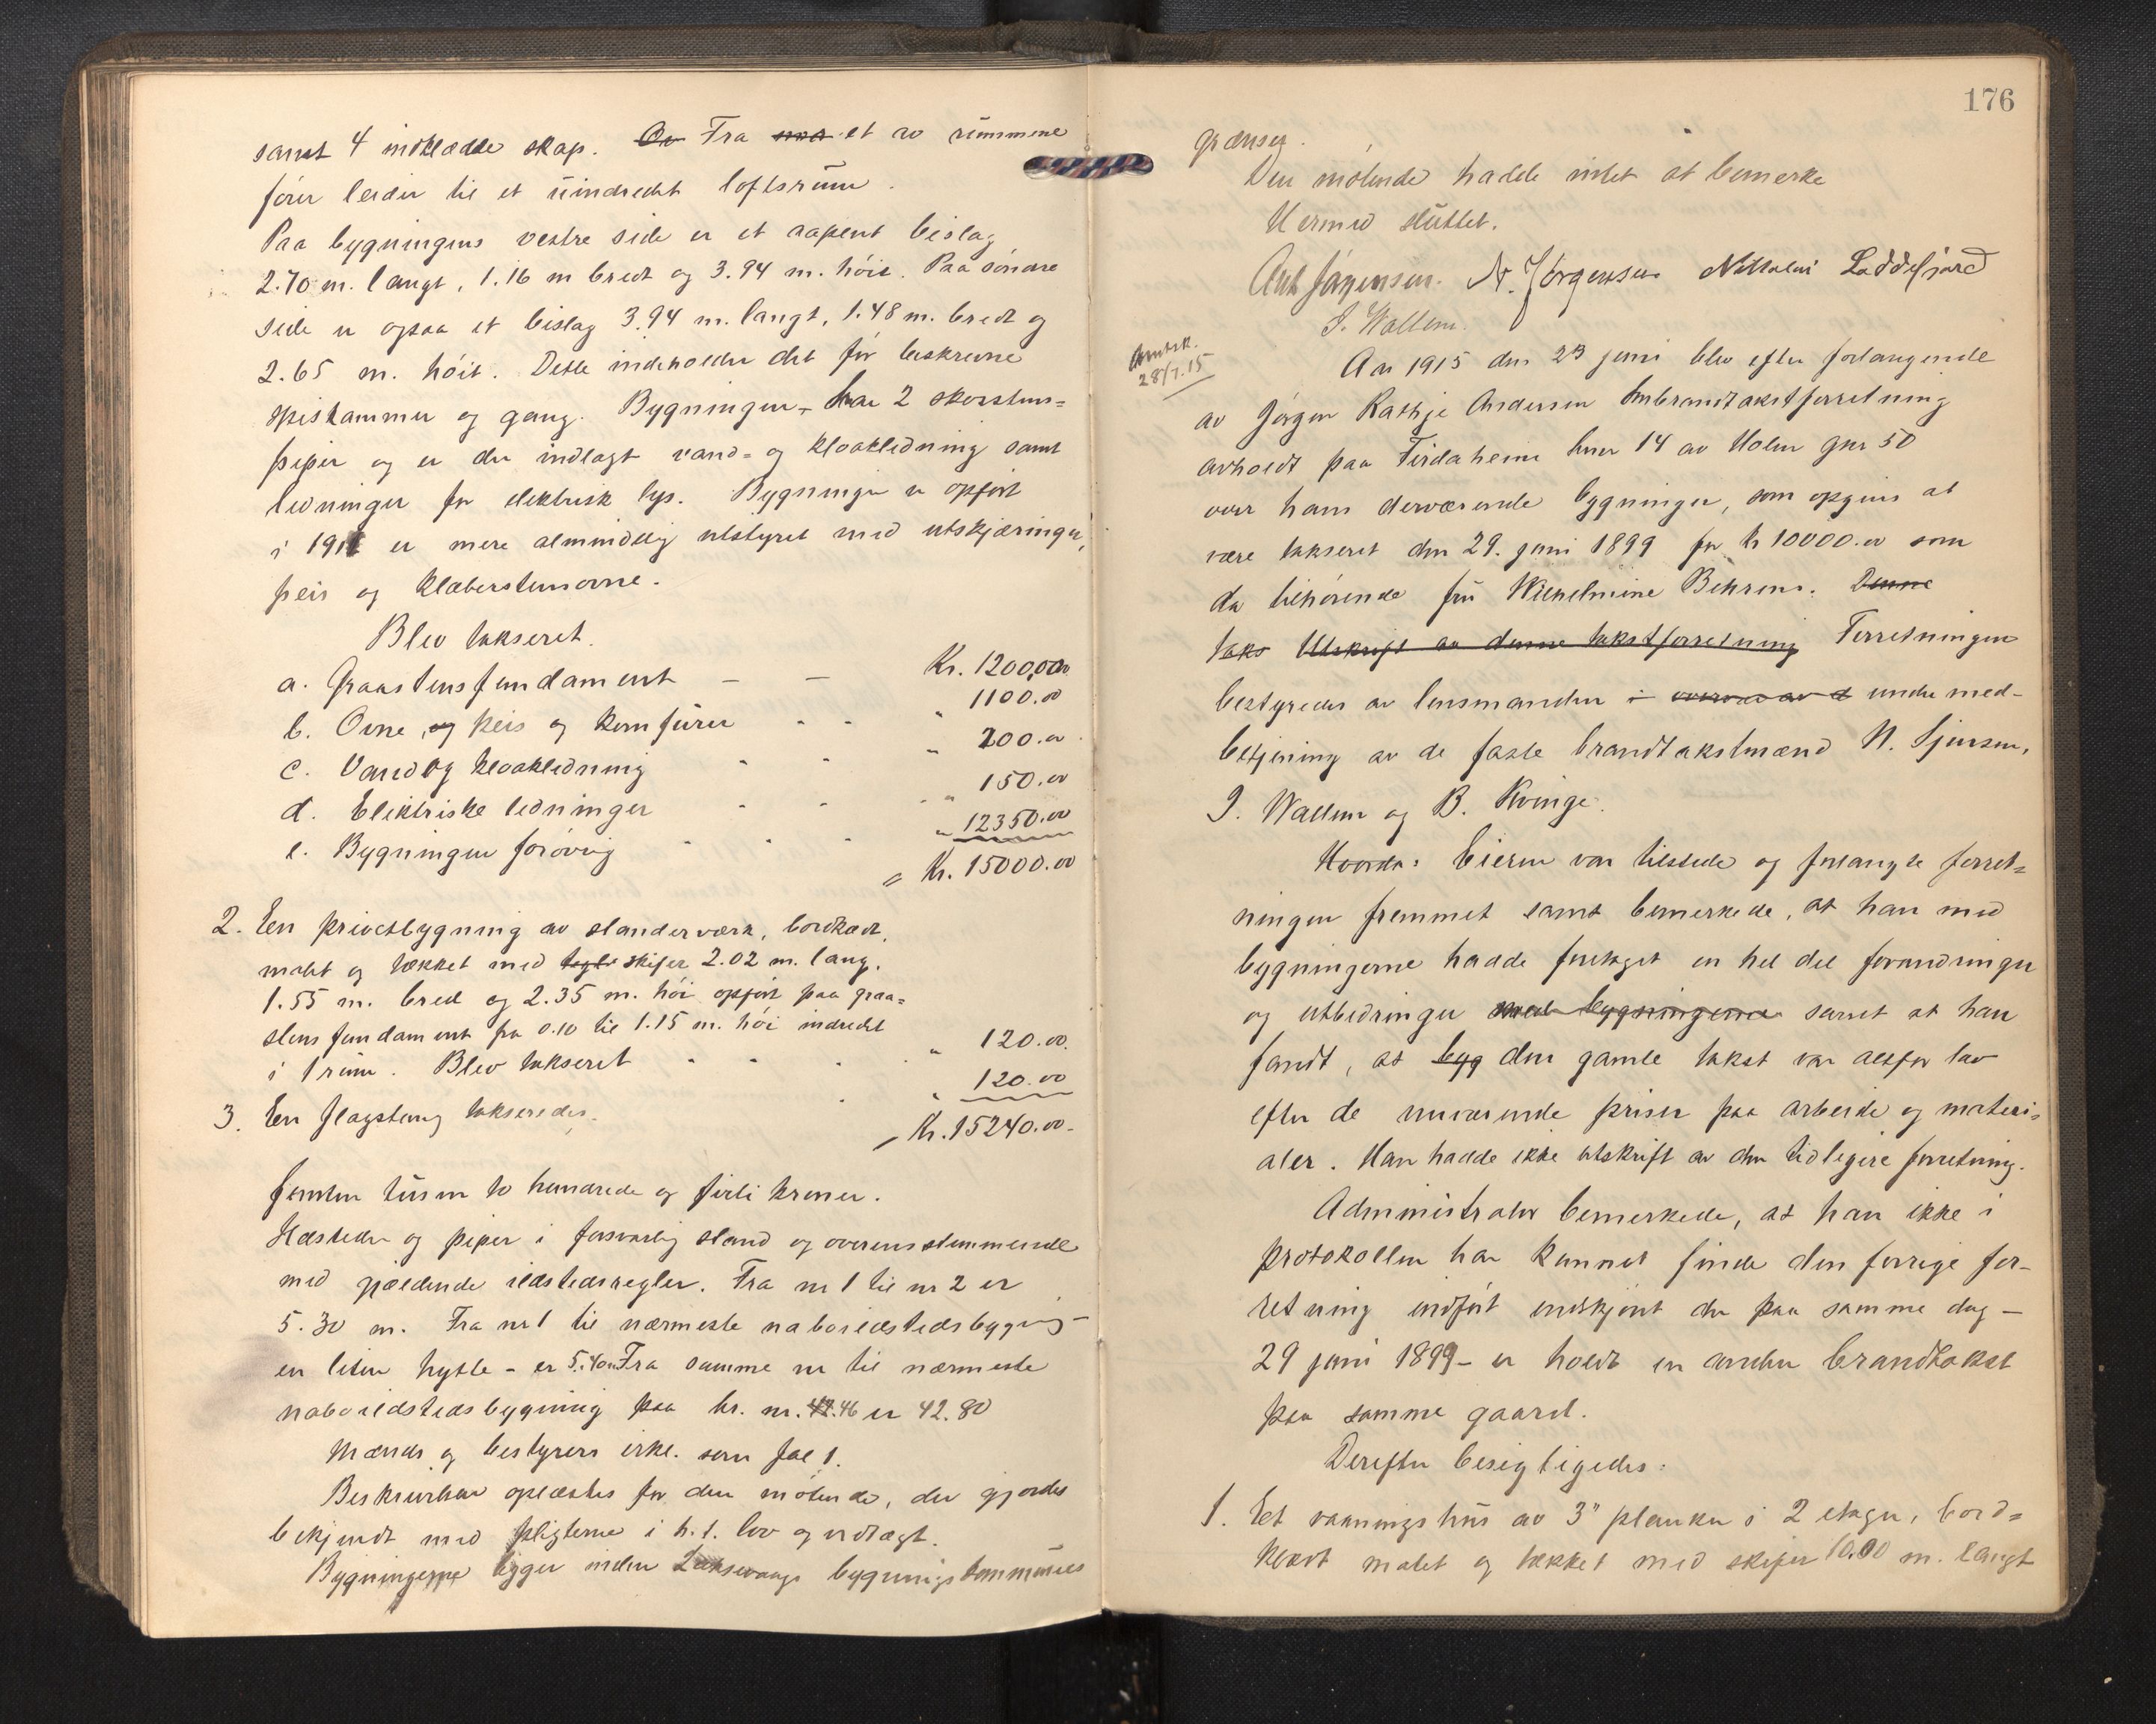 samt 4 indklædte skap. Av Fra et av rummene
fører leider til et uindredt loftsrum.
Paa bygningens vestre side er et aapent bislag
2.70 m. langt, 1.16 m bredt og 3.94 m. høit. Paa søndre
side er ogsaa et bislag 3.94 m. langt, 1.48 m. bredt og
2.65 m. høit. Dette indeholder det før beskrevne
spiskammer og gang. Bygningen har 2 skorstens-
piper og er der indlagt vand- og kloakledning samt
ledninger for elektrisk lys. Bygningen er opført
i 1911 er mere almindelig utstyret med utskjæringer,
peis og klæberstensovne.
Blev takseret.
a. Graastensfundament - - Kr. 1200,00
b. Ovne, og peis og komfurer - - " 1100.00
c. Vand og kloakledning - - " 200.00
d. Elektriske ledninger - - " 150.00
e. Bygningen forøvrig - - - " 12350.00
= Kr. 15000.00
2. En privetbygning av standerværk, bordklædt,
malt og tækket med tegl skifer 2.02 m. lang,
1.55 m. bred og 2.35 m. høi opført paa graa-
stensfundament fra 0.10 til 1.15 m. høi indredet
i 1 rum. Blev takseret - - - " 120.00.
3. En flagstang takseredes. - " 120.00
Kr. 15240.00-
femten tusen to hundrede og firti kroner.
Ildsteder og piper i forsvarlig stand og overensstemmende
med gjældende ildstedsregler. Fra nr 1 til nr 2 er
5.30 m. Fra nr 1 til nærmeste naboildstedsbygning -
en liten hytte - er 5.40 m Fra samme nr til nærmeste
naboildstedsbygning paa br. nr. 47.46 er 42.80
Mænds og bestyrers erkl. som fol 1.
Beskrivelsen oplæstes for den møtende, der gjordes
bekjendt med pligterne i h.t. lov og vedtægt.
Bygningerne ligger inden Laksevaags bygningskommunes
176
grænser.
Den møtende hadde intet at bemerke
Hermed sluttet.
Ant Jørgensen. N. Jørgensen Nikolai Loddefjord
I. Wallem.
Avutsk.
28/7.15
Aar 1915 den 23 juni blev efter forlangende
av Jørgen Rathje Andersen ombrandtakstforretning
avholdt paa Firdaheim bnr 14 av Holen gnr 50
over hans derværende bygninger, som opgives at
være takseret den 29. juni 1899 for kr 10000.00 som
da tilhørende fru Wilhelmine Behrens. Denne
taks Utskrift av denne takstforretning Forretningen
bestyredes av lensmanden i overvær av d under med-
betjening av de faste brandtakstmænd N. Sjursen,
I. Wallem og B. Kvinge.
Hvorda: Eieren var tilstede og forlangte forret-
ningen fremmet samt bemerkede, at han med
bygningerne hadde foretaget en hel del forandringer
og utbedringer med bygningerne samt at han
fandt, at byg den gamle takst var altfor lav
efter de nuværende priser paa arbeide og materi-
aler. Han hadde ikke utskrift av den tidligere forretning.
Administrator bemerkede, at han ikke i
protokollen har kunnet finde den forrige for-
retning indført endskjønt der paa samme dag -
29 juni 1899 - er holdt en anden brandtakst
paa samme gaard.
Derefter besigtigedes:
1. Et vaaningshus av 3" planker i 2 etager, bord-
klædt malet og tækket med skifer 10.00 m. langt